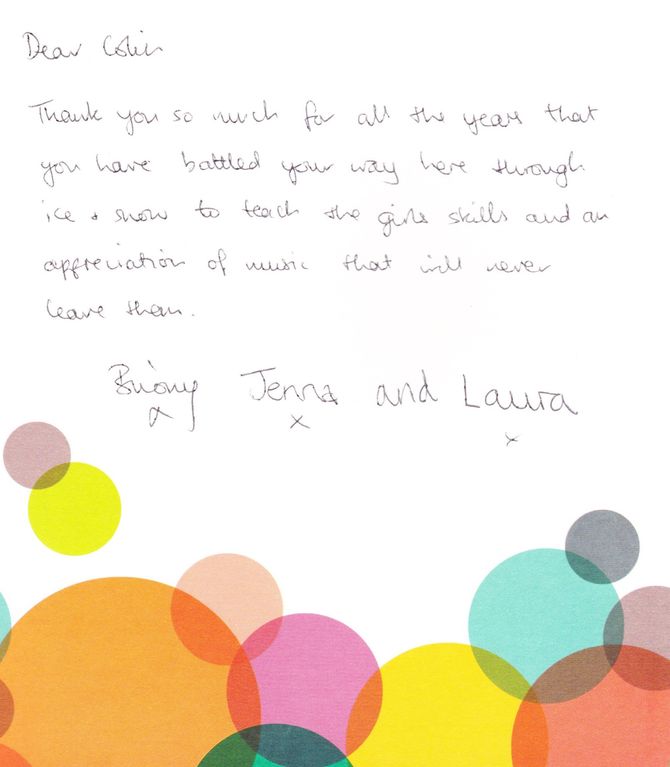 Dear Colin
Thank you so much for all the years that
you have battled your way here through
ice + snow to teach the girls skills and an
appreciation of music that will never
leave them.
Briony Jenna and Laura
x x x